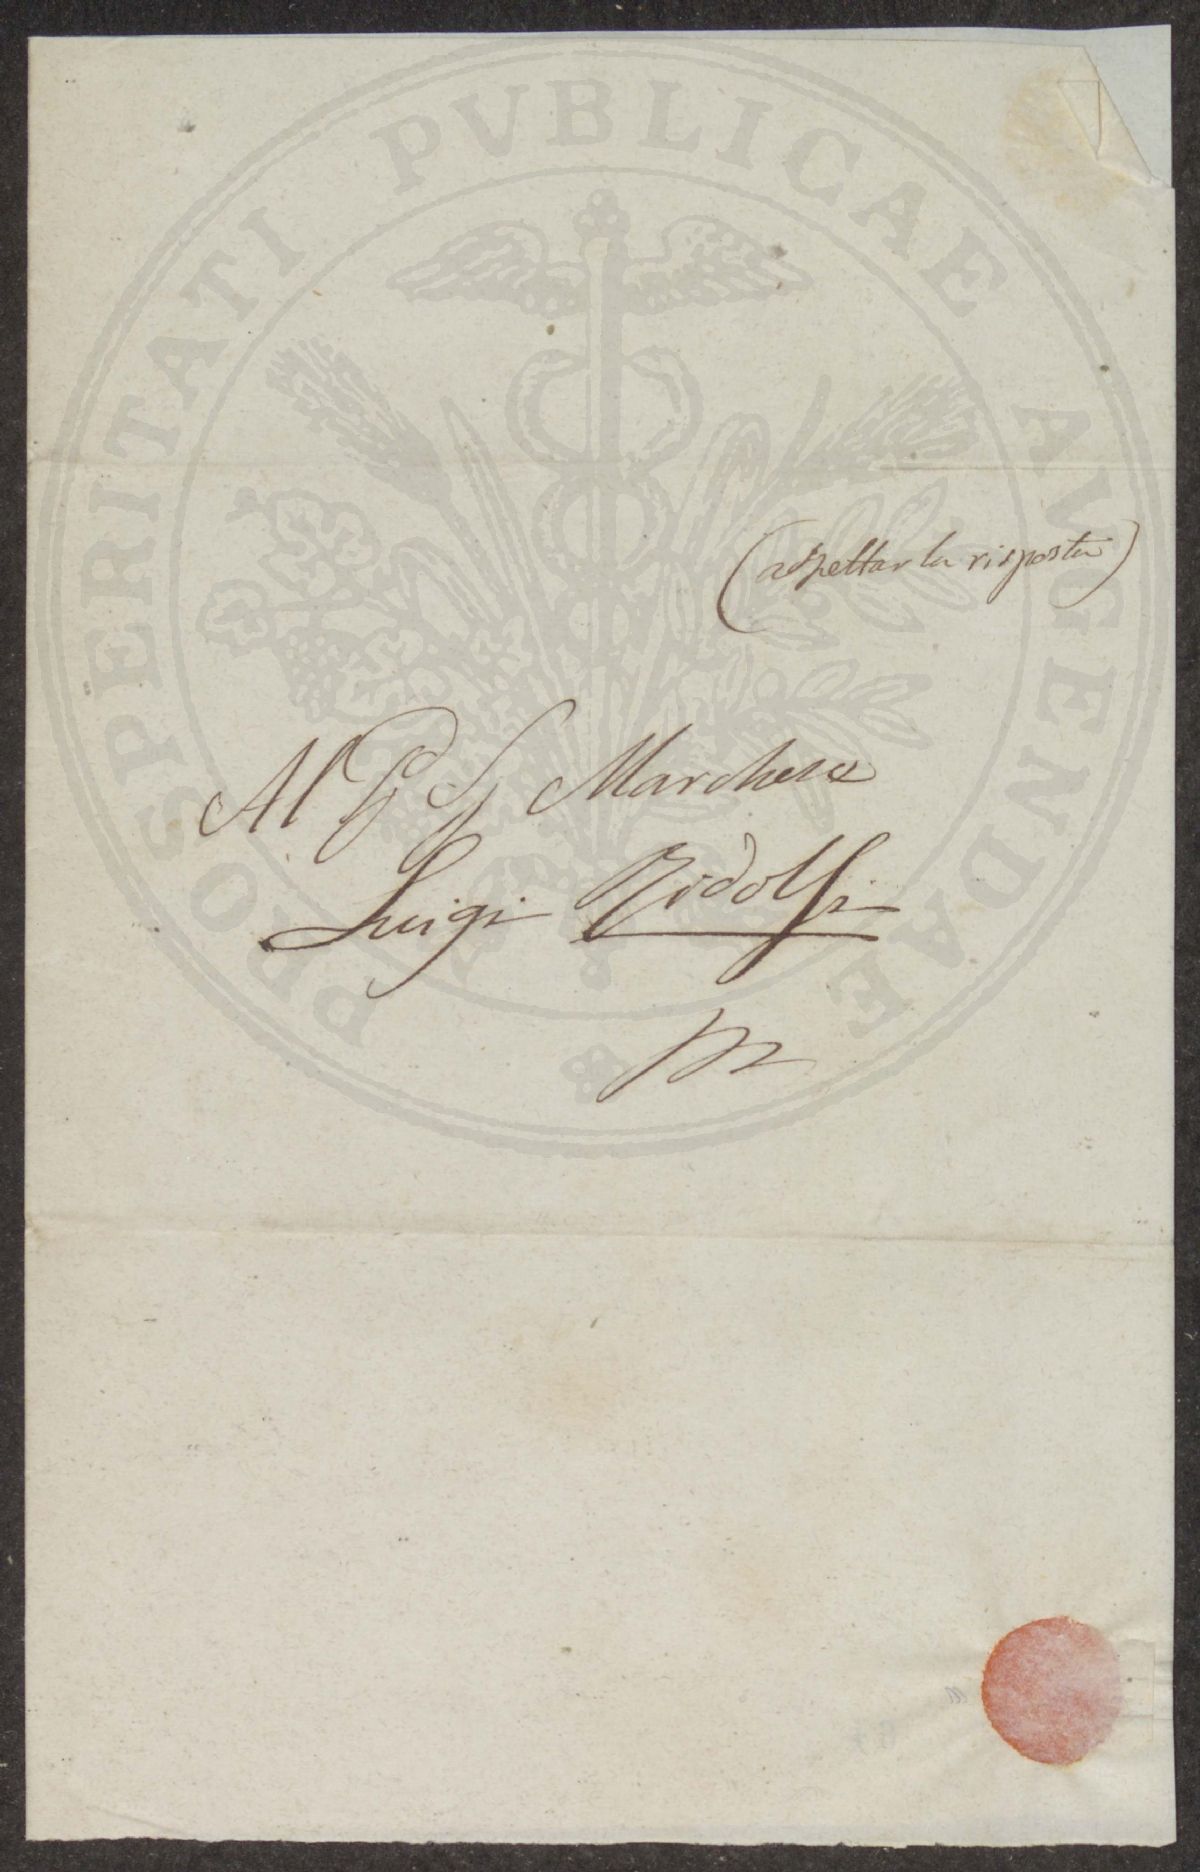 PROSPERITATI PVBLICAE AVGENDAE
(aspettar la risposta)
Al Marchese
Luigi Ridolfi